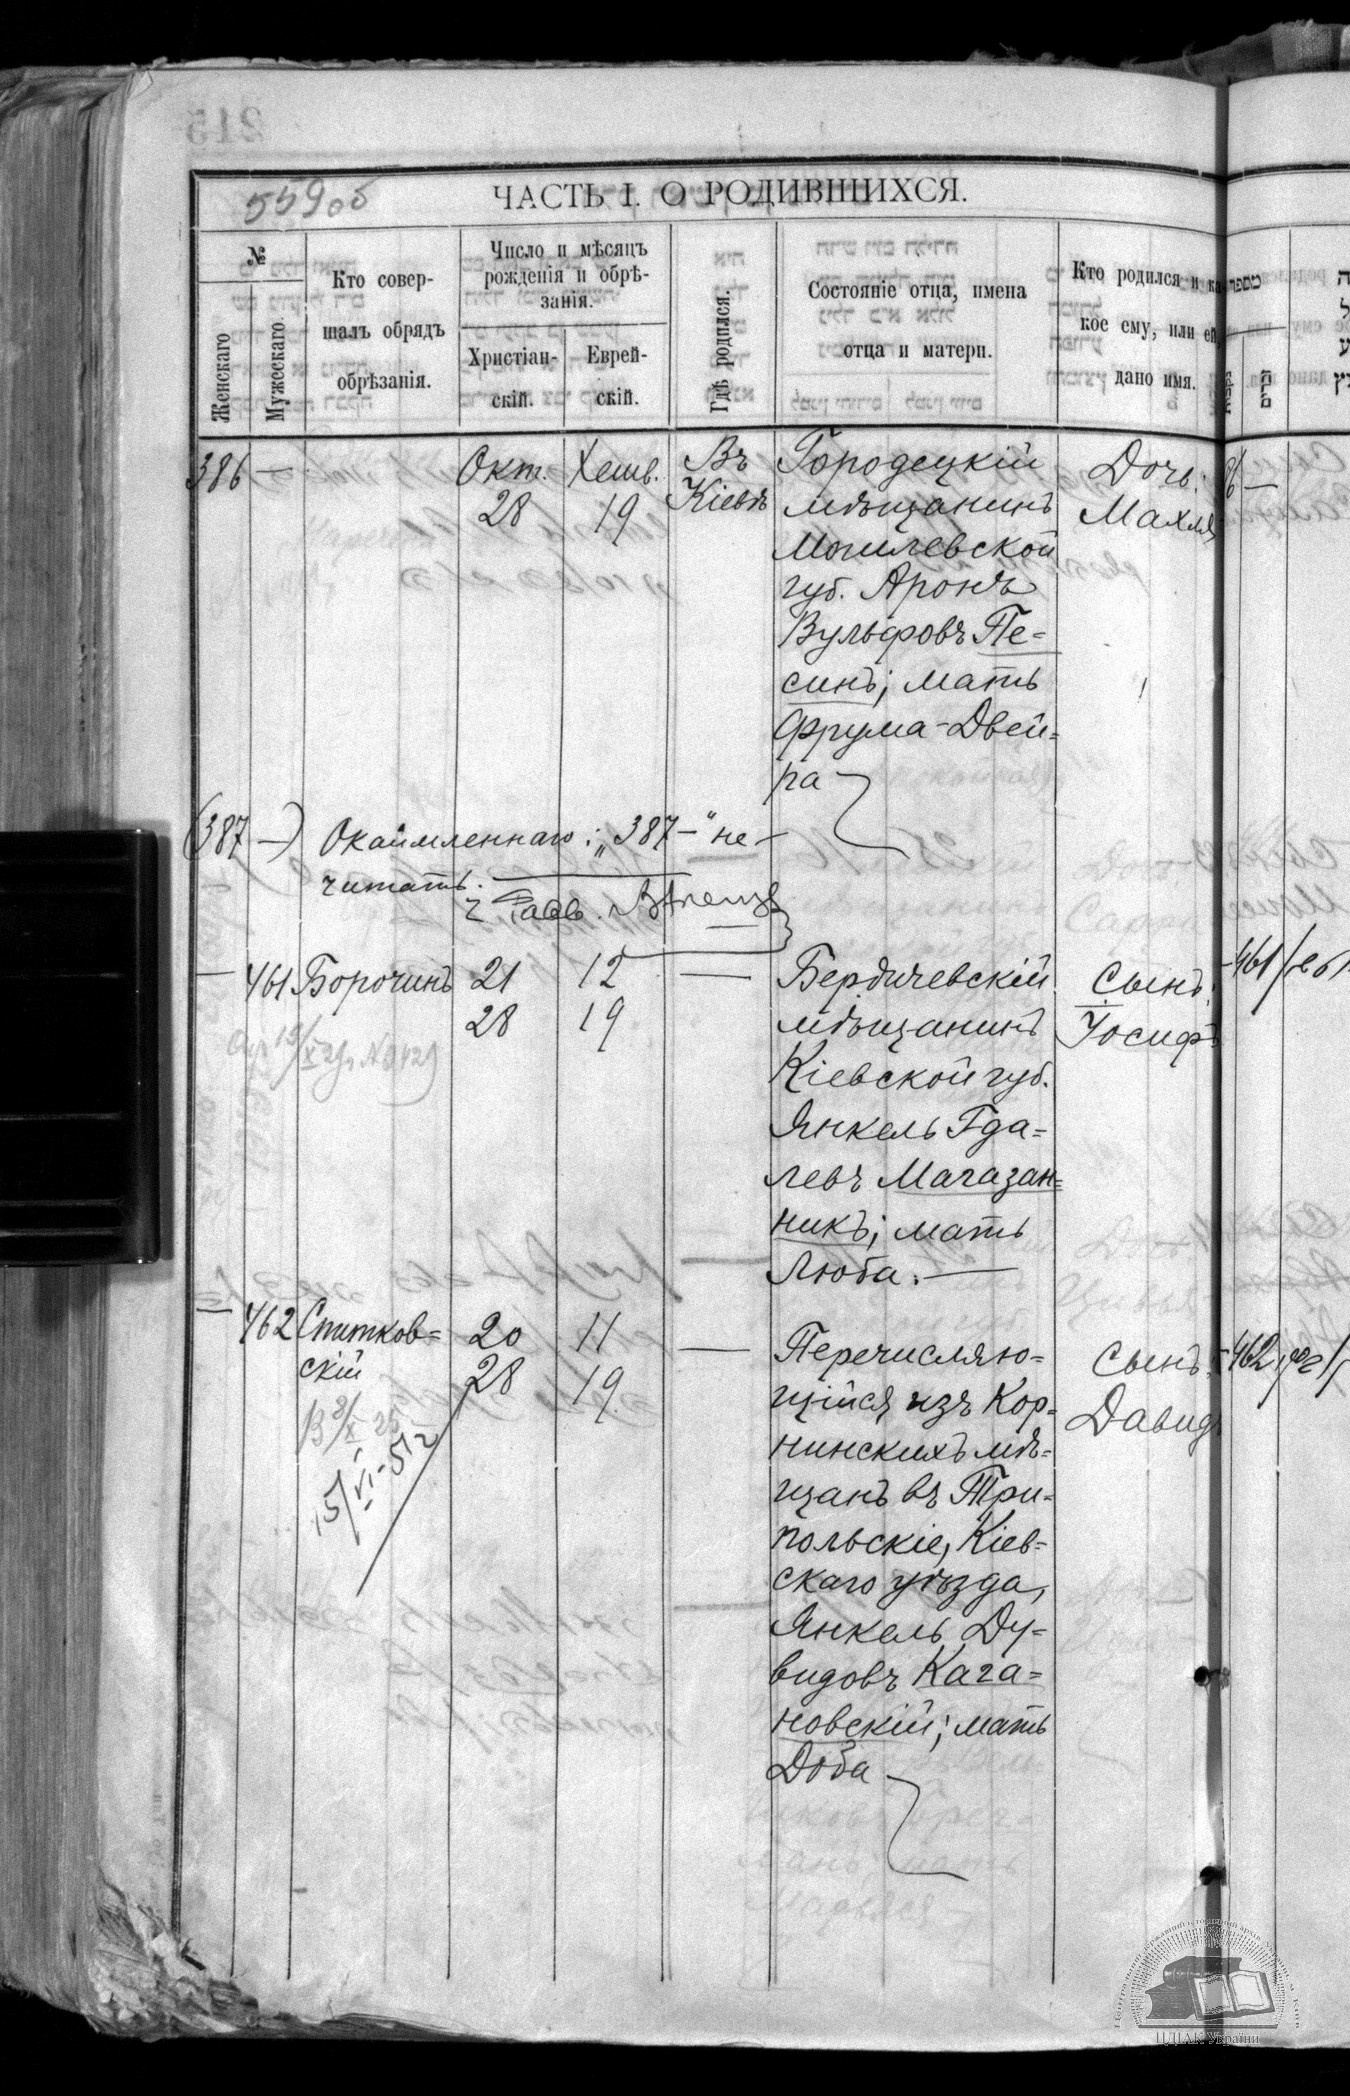 559об
ЧАСТЬ I. О РОДИВШИХСЯ.
№
Женскаго
Мужескаго
Кто совер-
шалъ обрядъ
обрѣзанія.
Число и мѣсяцъ
рожденія и обрѣ-
занія.
Христіан-
скій.
Еврей-
скій.
Гдѣ родился.
Состояніе отца, имена
отца и матери.
Кто родился и ка-
кое ему, или ей,
дано имя.
386 —
Окт.
28
Хешв.
19
Въ
Кіевѣ
Городецкій
мѣщанинъ
Могилевской
губ. Аронъ
Вульфовъ Пе-
синъ; мать
Фрума-Двей-
ра
Дочь:
Махля
(387 —) Окаймленнаго: „387 —" не
читать.
— 461
Борочинъ
21
28
12
19
—
Бердичевскій
мѣщанинъ
Кіевской губ.
Янкель Гда-
левъ Магазан-
никъ; мать
Люба. —
Сынъ:
Іосифъ
461
— 462
Спитков-
скій
20
28
11
19
—
15/VI-51г
Перечисляю-
щійся изъ Кор-
нинскихъ мѣ-
щанъ въ Три-
польскіе, Кіев-
скаго уѣзда,
Янкель Ду-
видовъ Кага-
новскій; мать
Доба
Сынъ:
Давидъ
462
ЦДІАК України